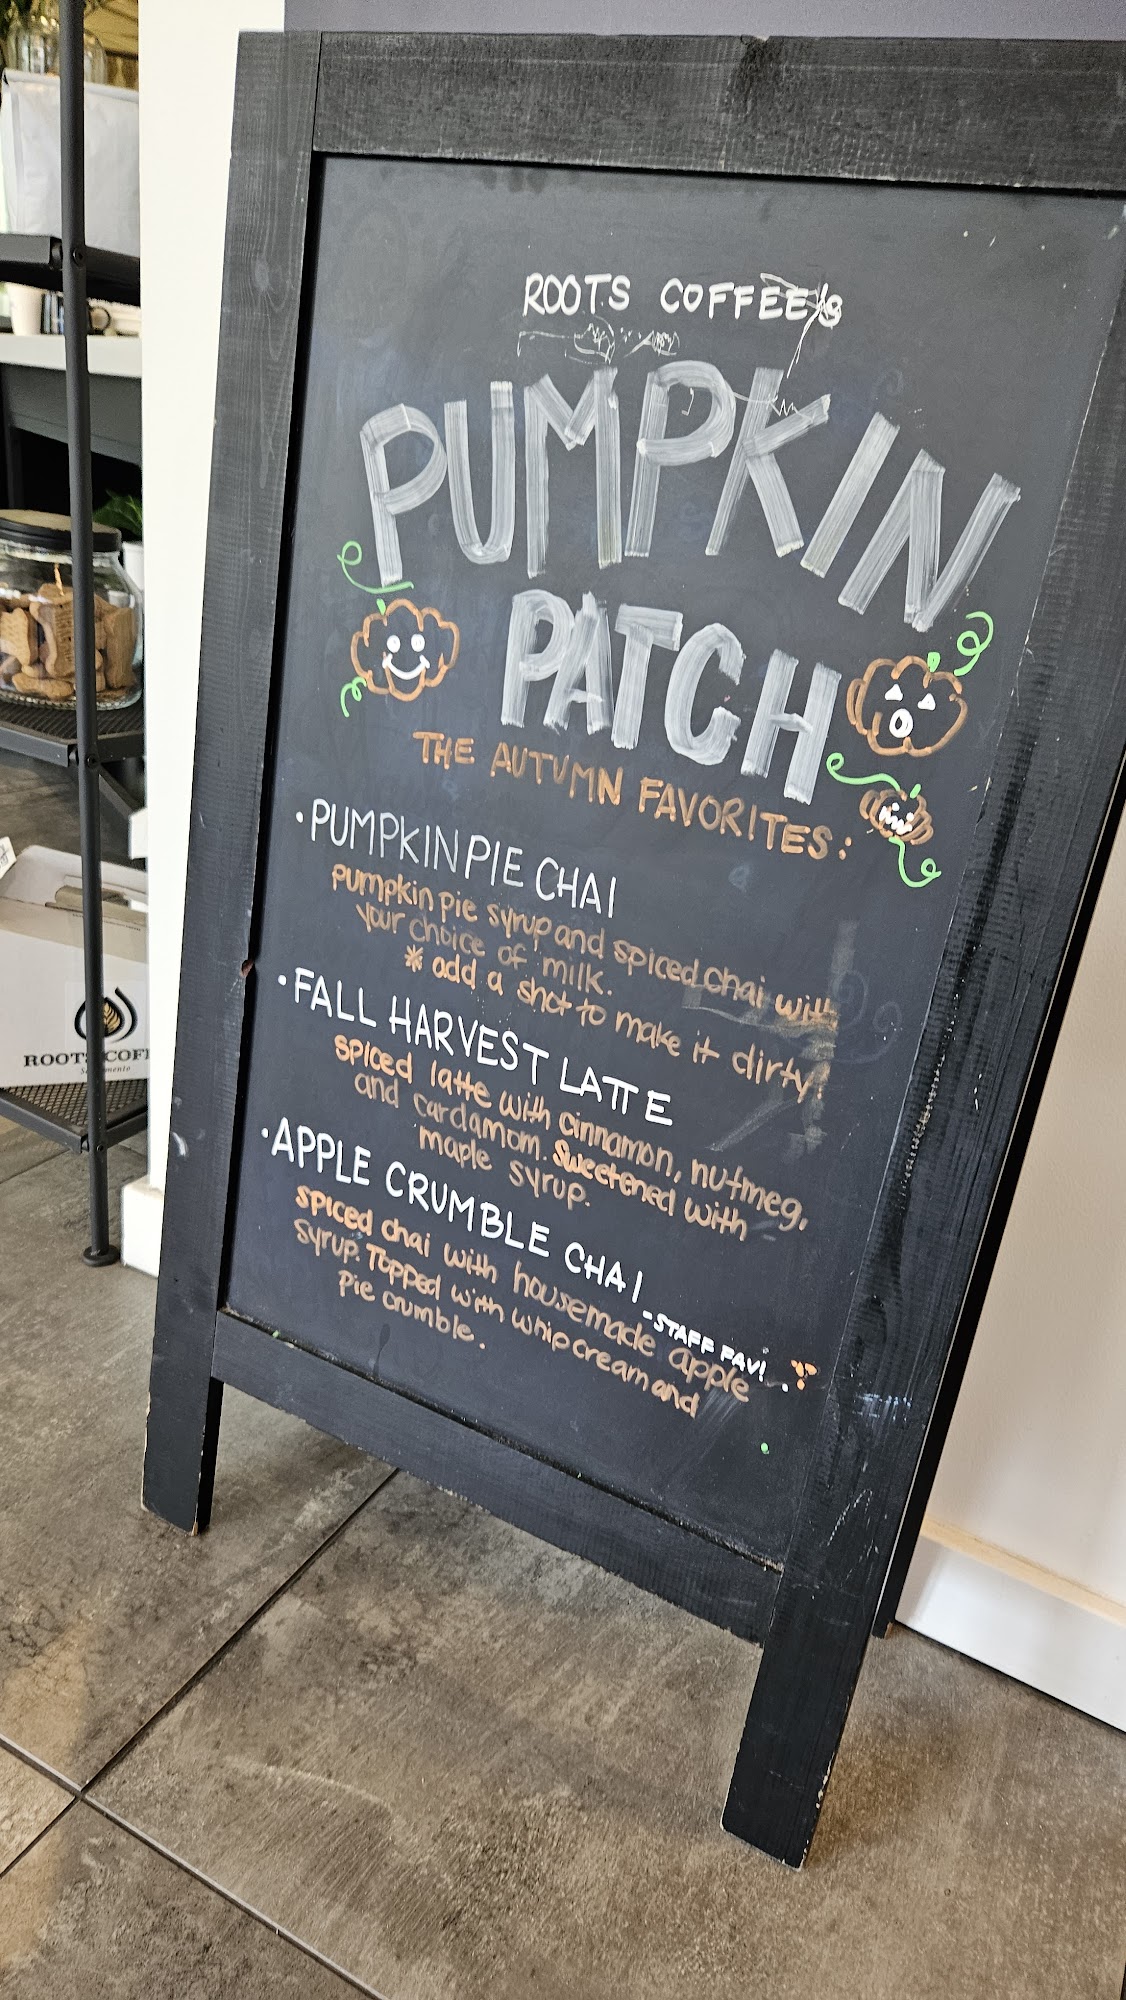 ROOTS COFFEE's
PUMPKIN
PATCH
THE AUTUMN FAVORITES:
• PUMPKIN PIE CHAI
pumpkin pie syrup and spiced chai with
your choice of milk.
* add a shot to make it dirty!
• FALL HARVEST LATTE
spiced latte with cinnamon, nutmeg,
and cardamom. Sweetened with
maple syrup.
• APPLE CRUMBLE CHAI
- STAFF FAV!
spiced chai with housemade apple
syrup. Topped with whip cream and
pie crumble.
ROOTS COFF